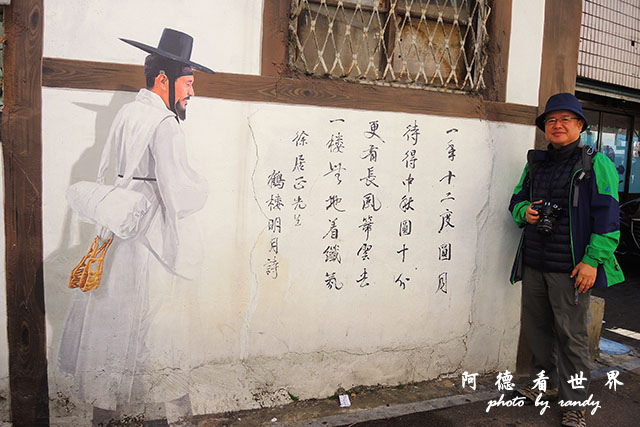 一年十二度圓月
待得中秋圓十分
更有長風箒雲去
一樓無地着纖氛
徐居正先生
鶴樓明月詩
阿德看世界
photo by randy